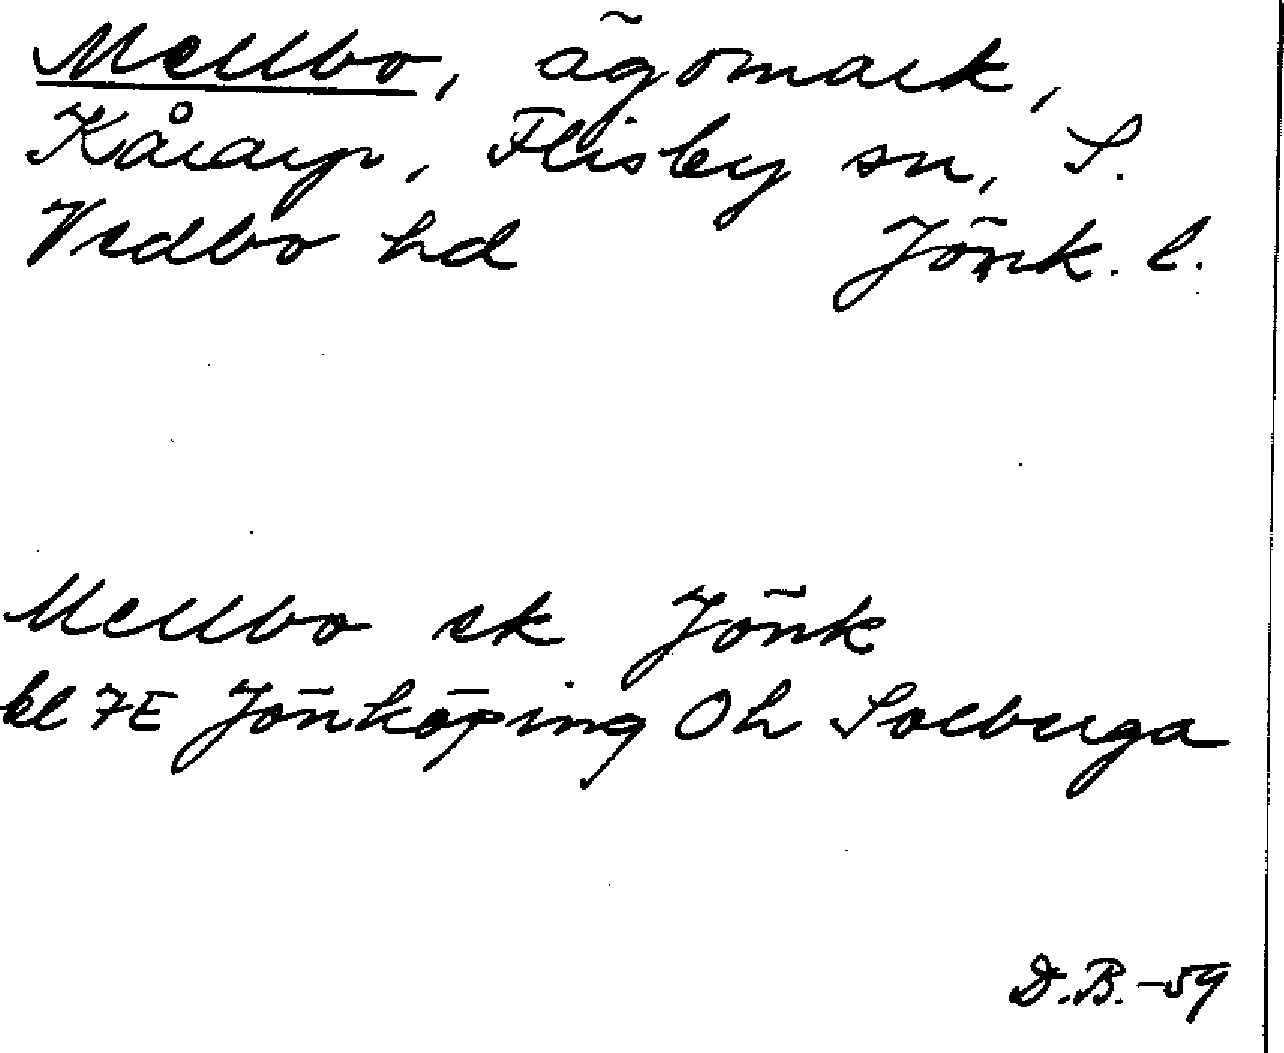 Mellbo, ägomark,
Kårarp, Flisby sn, S.
Vedbo hd Jönk. l.
Mellbo ek Jönk
bl 7E Jönköping Öh Solberga
D.B.-59